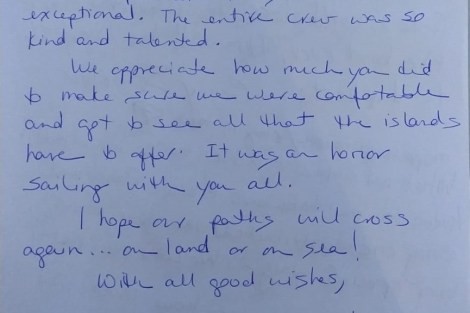 exceptional. The entire crew was so
kind and talented.
We appreciate how much you did
to make sure we were comfortable
and got to see all that the islands
have to offer. It was an honor
sailing with you all.
I hope our paths will cross
again... on land or on sea!
With all good wishes,